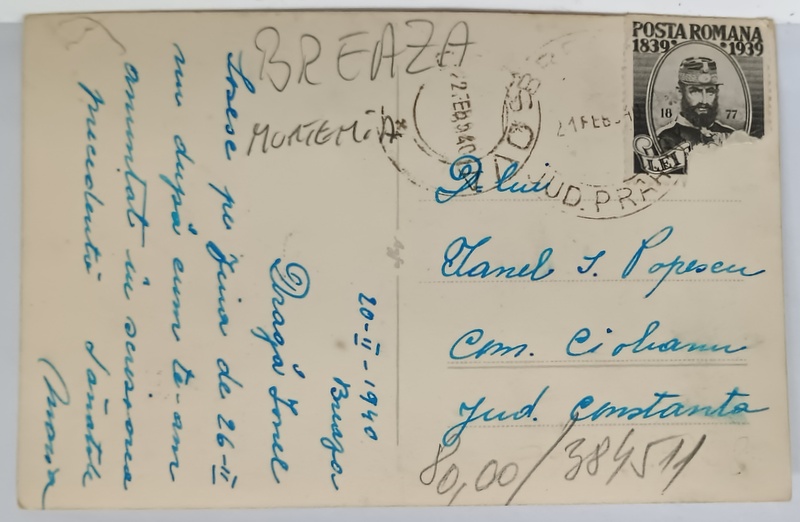 BREAZA
MORTEMIA
20-II-1940
Breaza
Dragă Ionel
Sosesc pe ziua de 26-II
nu după cum te-am
anunțat în scrisoarea
precedentă Sănătate
Maria
POSTA ROMANA
1839 1939
18 77
LEI
22 FEB 940
21 FEB
JUD. PRAH
D-lui
Ianel I. Popescu
Com. Ciobanu
Jud. Constanta
80,00/384511